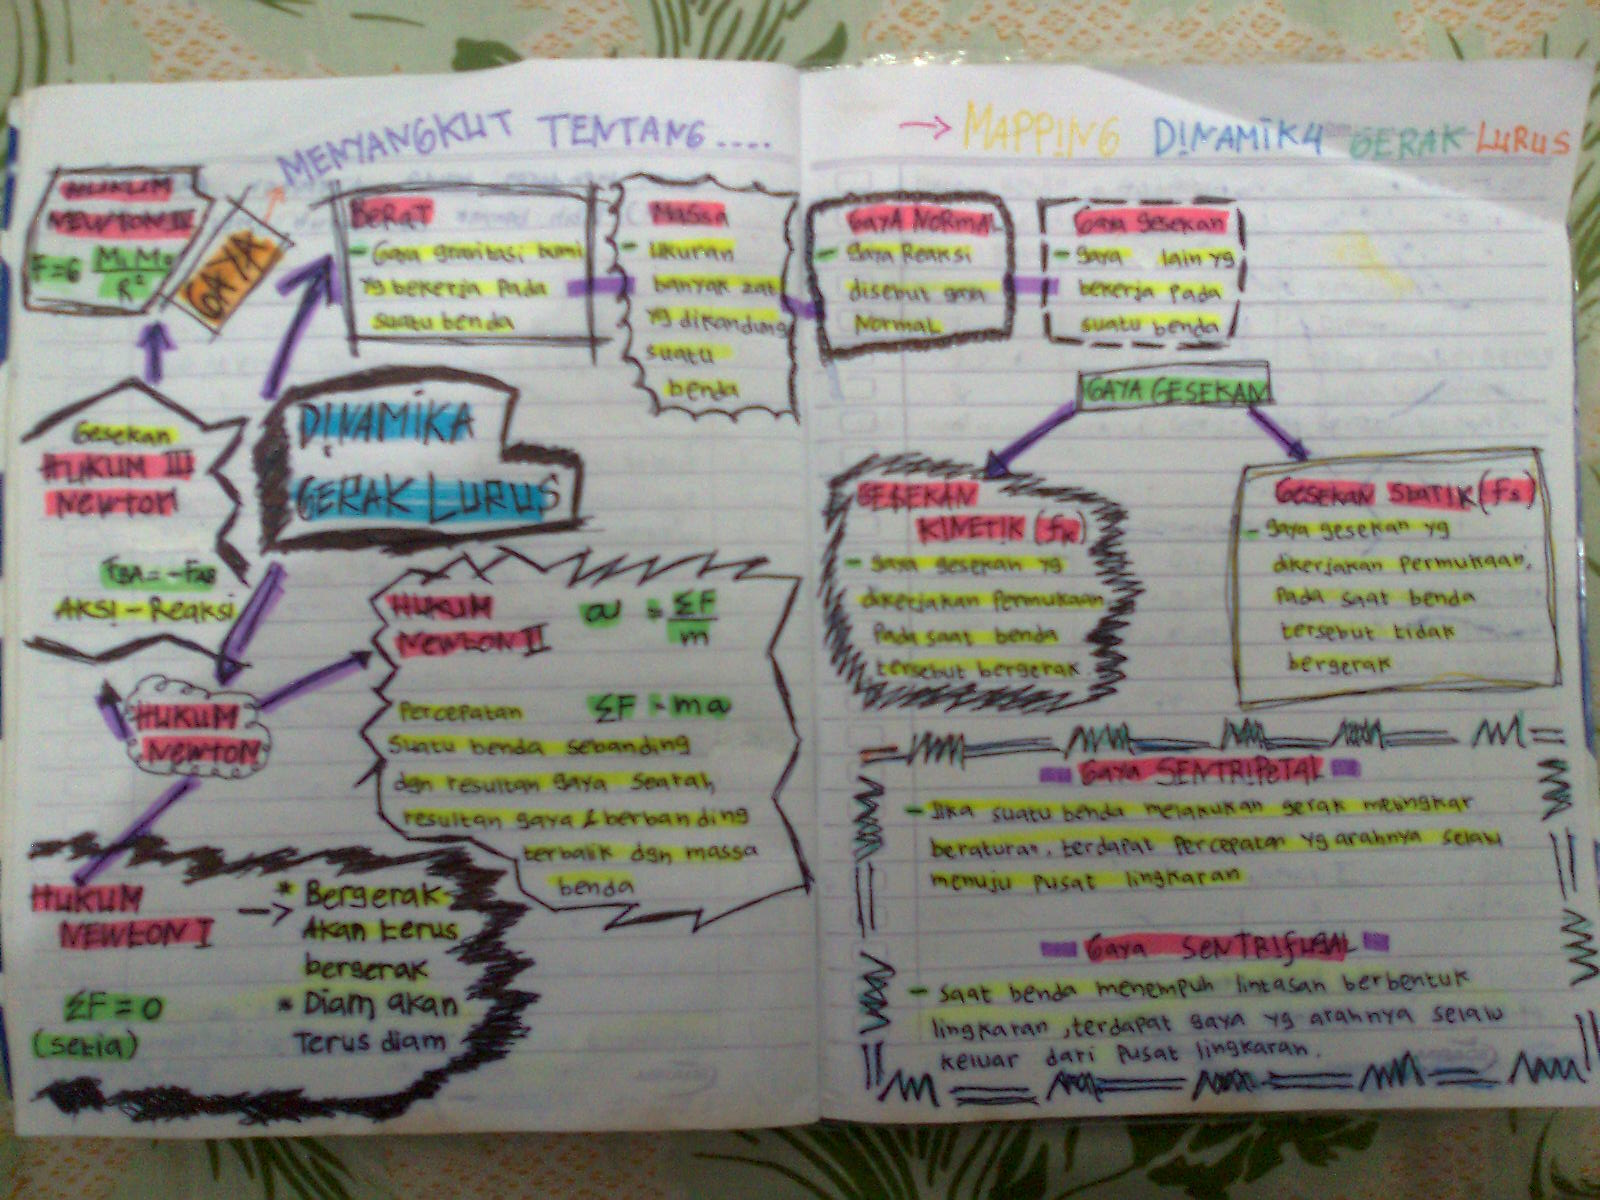 MENYANGKUT TENTANG ....
→ MAPPING DINAMIKA GERAK LURUS
HUKUM
NEWTON IV
F=G M1 M2
R²
GAYA
BERAT
- Gaya gravitasi bumi
yg bekerja pada
suatu benda
Massa
- Ukuran
banyak zat
yg dikandung
suatu
benda
GAYA NORMAL
- gaya Reaksi
disebut gaya
Normal
Gaya gesekan
- gaya lain yg
bekerja pada
suatu benda
GAYA GESEKAN
GESEKAN
KINETIK (fk)
- gaya gesekan yg
dikerjakan permukaan
pada saat benda
tersebut bergerak
GESEKAN STATIK (fs)
- gaya gesekan yg
dikerjakan permukaan,
pada saat benda
tersebut tidak
bergerak
DINAMIKA
GERAK LURUS
Gesekan
HUKUM III
Newton
FBA = -FAB
AKSI - Reaksi
HUKUM
Newton
HUKUM
Newton II
a = ΣF
m
ΣF = ma
Percepatan
suatu benda sebanding
dgn resultan gaya searah,
resultan gaya & berbanding
terbalik dgn massa
benda
HUKUM
NEWTON I
ΣF = 0
(setia)
→ * Bergerak
Akan terus
bergerak
* Diam akan
Terus diam
Gaya SENTRIPETAL
- Jika suatu benda melakukan gerak melingkar
beraturan, terdapat percepatan yg arahnya selalu
menuju pusat lingkaran
Gaya SENTRIFUGAL
- saat benda menempuh lintasan berbentuk
lingkaran, terdapat gaya yg arahnya selalu
keluar dari pusat lingkaran.